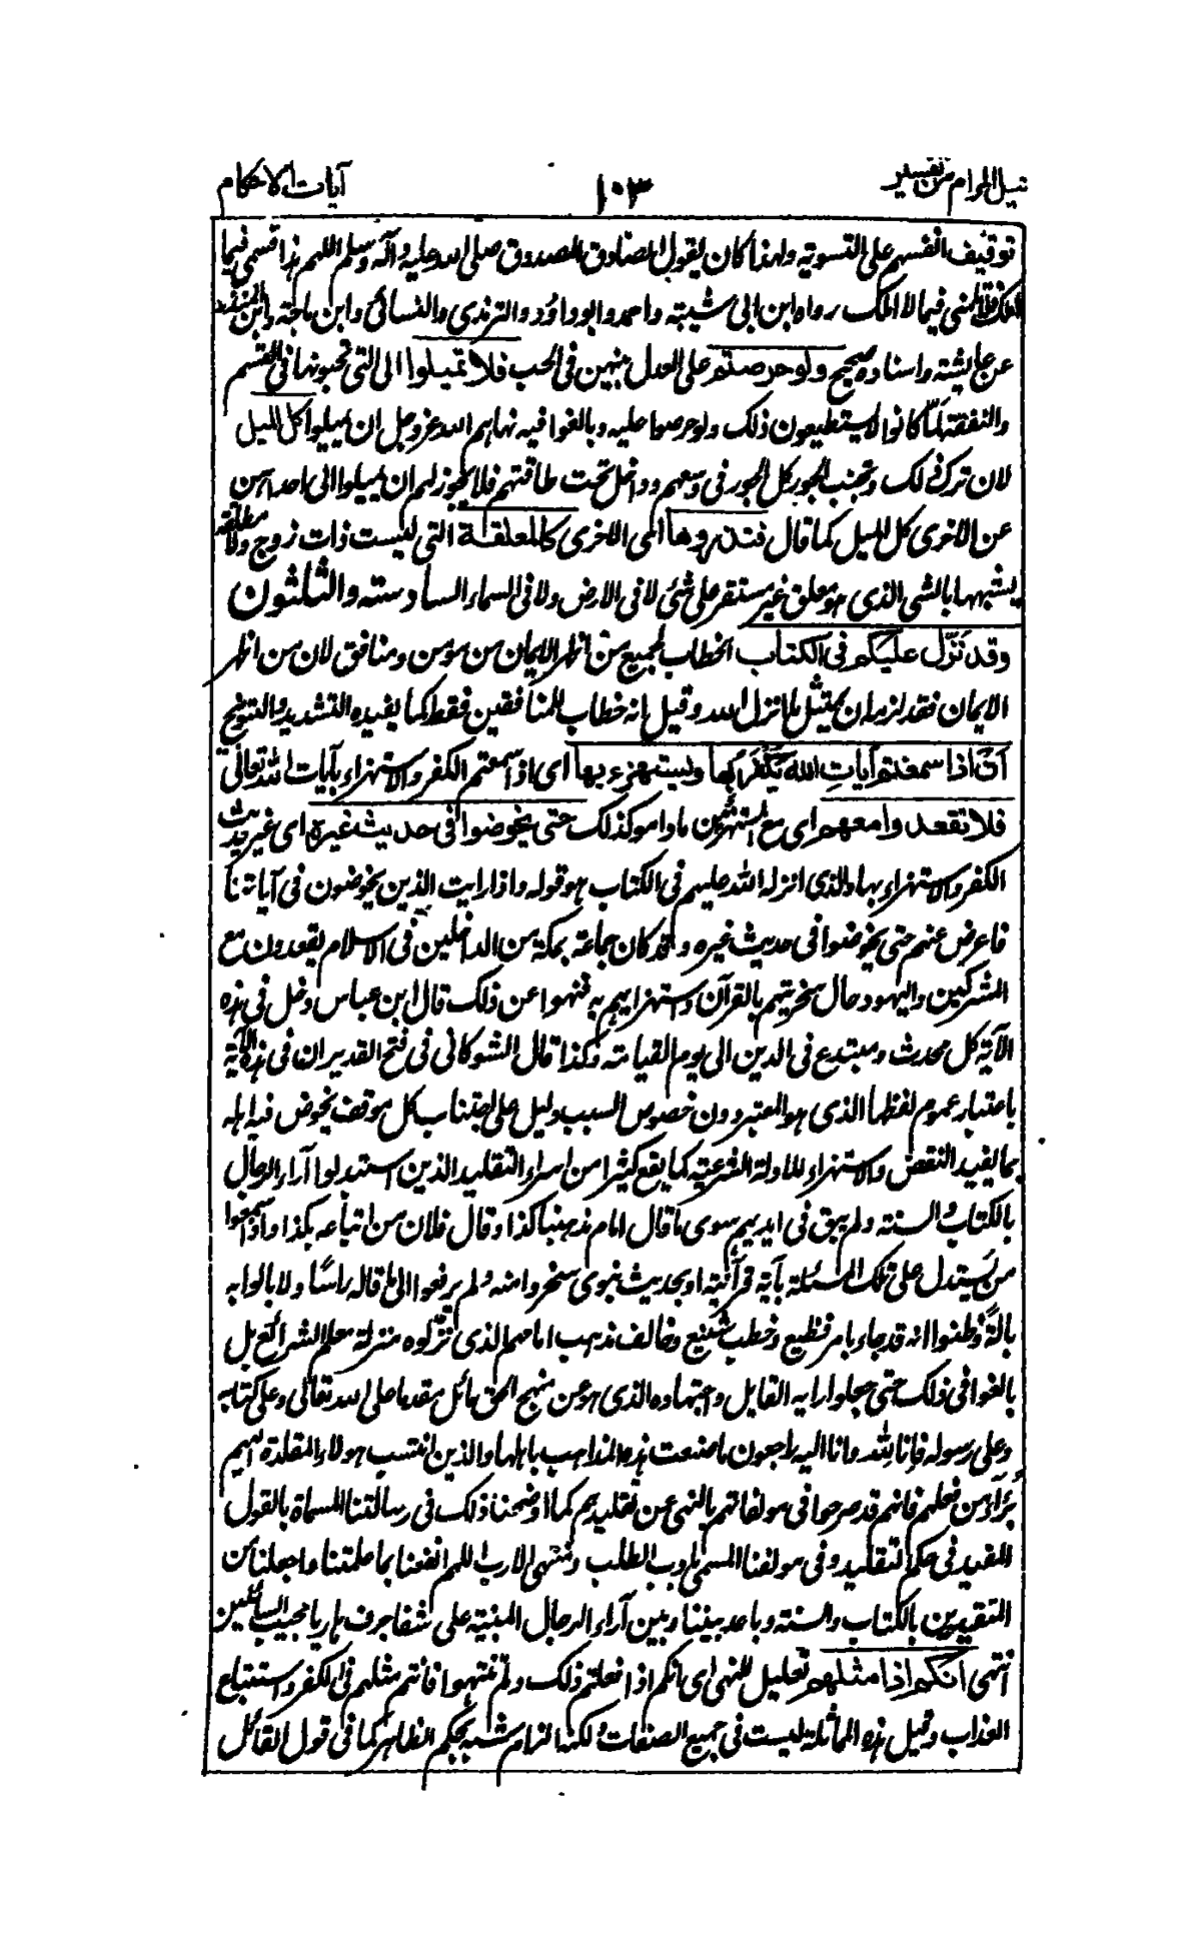 نيل المرام من تفسير ١٠٣ آيات الاحكام
توقيف انفسهم على التسوية ولهذا كان يقول الصادق المصدوق صلى الله عليه وآله وسلم اللهم هذا قسمى فيما
املك فلا تلمنى فيما لا املك رواه ابن ابى شيبة واحمد وابو داؤد والترمذى والنسائى وابن ماجة وابن المنذر
عن عايشة واسناده صحيح ولو حرصتم على العدل بينهن فى الحب فلا تميلوا الى التى تحبونها فى القسم
والنفقة لما كانوا لا يستطيعون ذلك ولو حرصوا عليه وبالغوا فيه نهاهم الله عز وجل ان يميلوا كل الميل
لان ترك ذلك وتجنب الجور كل الجور فى وسعهم وداخل تحت طاقتهم فلا يجوز لهم ان يميلوا الى احداهن
عن الاخرى كل الميل كما قال فتذروها اى الاخرى كالمعلقة التى ليست ذات زوج ولا مطلقة
يشبهها بالشئ الذى هو معلق غير مستقر على شئ لا فى الارض ولا فى السماء السادسته والثلثون
وقد نزل عليكم فى الكتاب الخطاب لجميع من اظهر الايمان من مومن ومنافق لان من اظهر
الايمان فقد لزمه ان يمتثل لما نزل الله وقيل انه خطاب للمنافقين فقط كما يفيده التشديد والتوبيخ
ان اذا سمعتم آيات الله يكفر بها ويستهزء بها اى اذا سمعتم الكفر والاستهزاء بآيات الله تعالى
فلا تقعدوا معهم اى مع المستهزئين ما داموا كذلك حتى يخوضوا فى حديث غيره اى غير حديث
الكفر والاستهزاء بها والذى انزله الله عليهم فى الكتاب هو قوله واذا رايت الذين يخوضون فى آياتنا
فاعرض عنهم حتى يخوضوا فى حديث غيره وقد كان جماعة بمكة من الداخلين فى الاسلام يقعدون مع
المشركين واليهود حال سخريتهم بالقرآن واستهزايهم به فنهوا عن ذلك قال ابن عباس دخل فى هذه
الآية كل محدث ومبتدع فى الدين الى يوم القيامته وكذا قال الشوكانى فى فتح القدير ان فى هذه الآية
باعتبار عموم لفظها الذى هو المعتبر دون خصوص السبب دليل على اجتناب كل موقف يخوض فيه اهله
بما يفيد النقص والاستهزاء للادلة الشرعية كما يقع كثيرا من اسراء التقليد الذين استبدلوا آراء الرجال
بالكتاب والسنة ولم يبق فى ايديهم سوى ما قال امام مذهبنا كذا وقال فلان من اتباعه بكذا واذا سمعوا
من يستدل على تلك المسئلة بآية قرآنية او بحديث نبوى سخروا منه ولم يرفعوا الى ما قاله راسًا ولا بالوا به
بالةً وظنوا انه قد جاء بامر فظيع وخطب شنيع وخالف مذهب امامهم الذى نزلوه منزلة معلم الشرائع بل
بالغوا فى ذلك حتى جعلوا رايه القايل واجتهاده الذى هو عن منهج الحق مائل مقدما على الله تعالى وعلى كتابه
وعلى رسوله فانا لله وانا اليه راجعون ما صنعت هذه المذاهب باهلها والذين انتسب هولاء المقلدة اليهم
برآء من فعلهم فانهم قد صرحوا فى مولفاتهم بالنهى عن تقليدهم كما اوضحنا ذلك فى رسالتنا المسماة بالقول
المفيد فى حكم التقليد وفى مولفنا المسمى بادب الطلب ومنتهى الارب اللهم انفعنا بما علمتنا واجعلنا من
المتقيدين بالكتاب والسنة وباعد بيننا وبين آراء الرجال المبنية على شفا جرف هار يا مجيب السائلين
انتهى انكم اذا مثلهم تعليل للنهى اى انكم اذا فعلتم ذلك ولم تنتهوا فانتم مثلهم فى الكفر واستتباع
العذاب وقيل هذه المماثلة ليست فى جميع الصفات لكنه الزام شبه بحكم الظاهر كما فى قول القائل